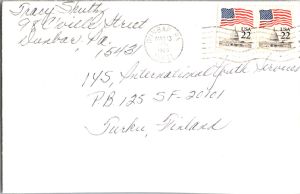 Tracy Smith
98 Coville Street
Dunbar Pa.
15431
DUNBAR
USA 22
USA 22
IYS, International Youth Services
PB 125 SF-20101
Turku, Finland